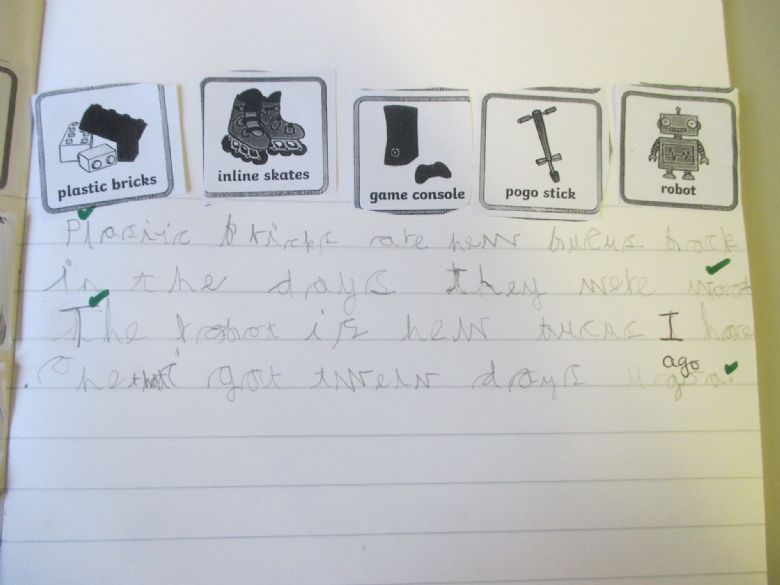 plastic bricks inline skates game console pogo stick robot
Plasiic bricks are new bucus back
in the days they were woot
The robot is new bucus I have
ago
one that i got twelv days ugoa.